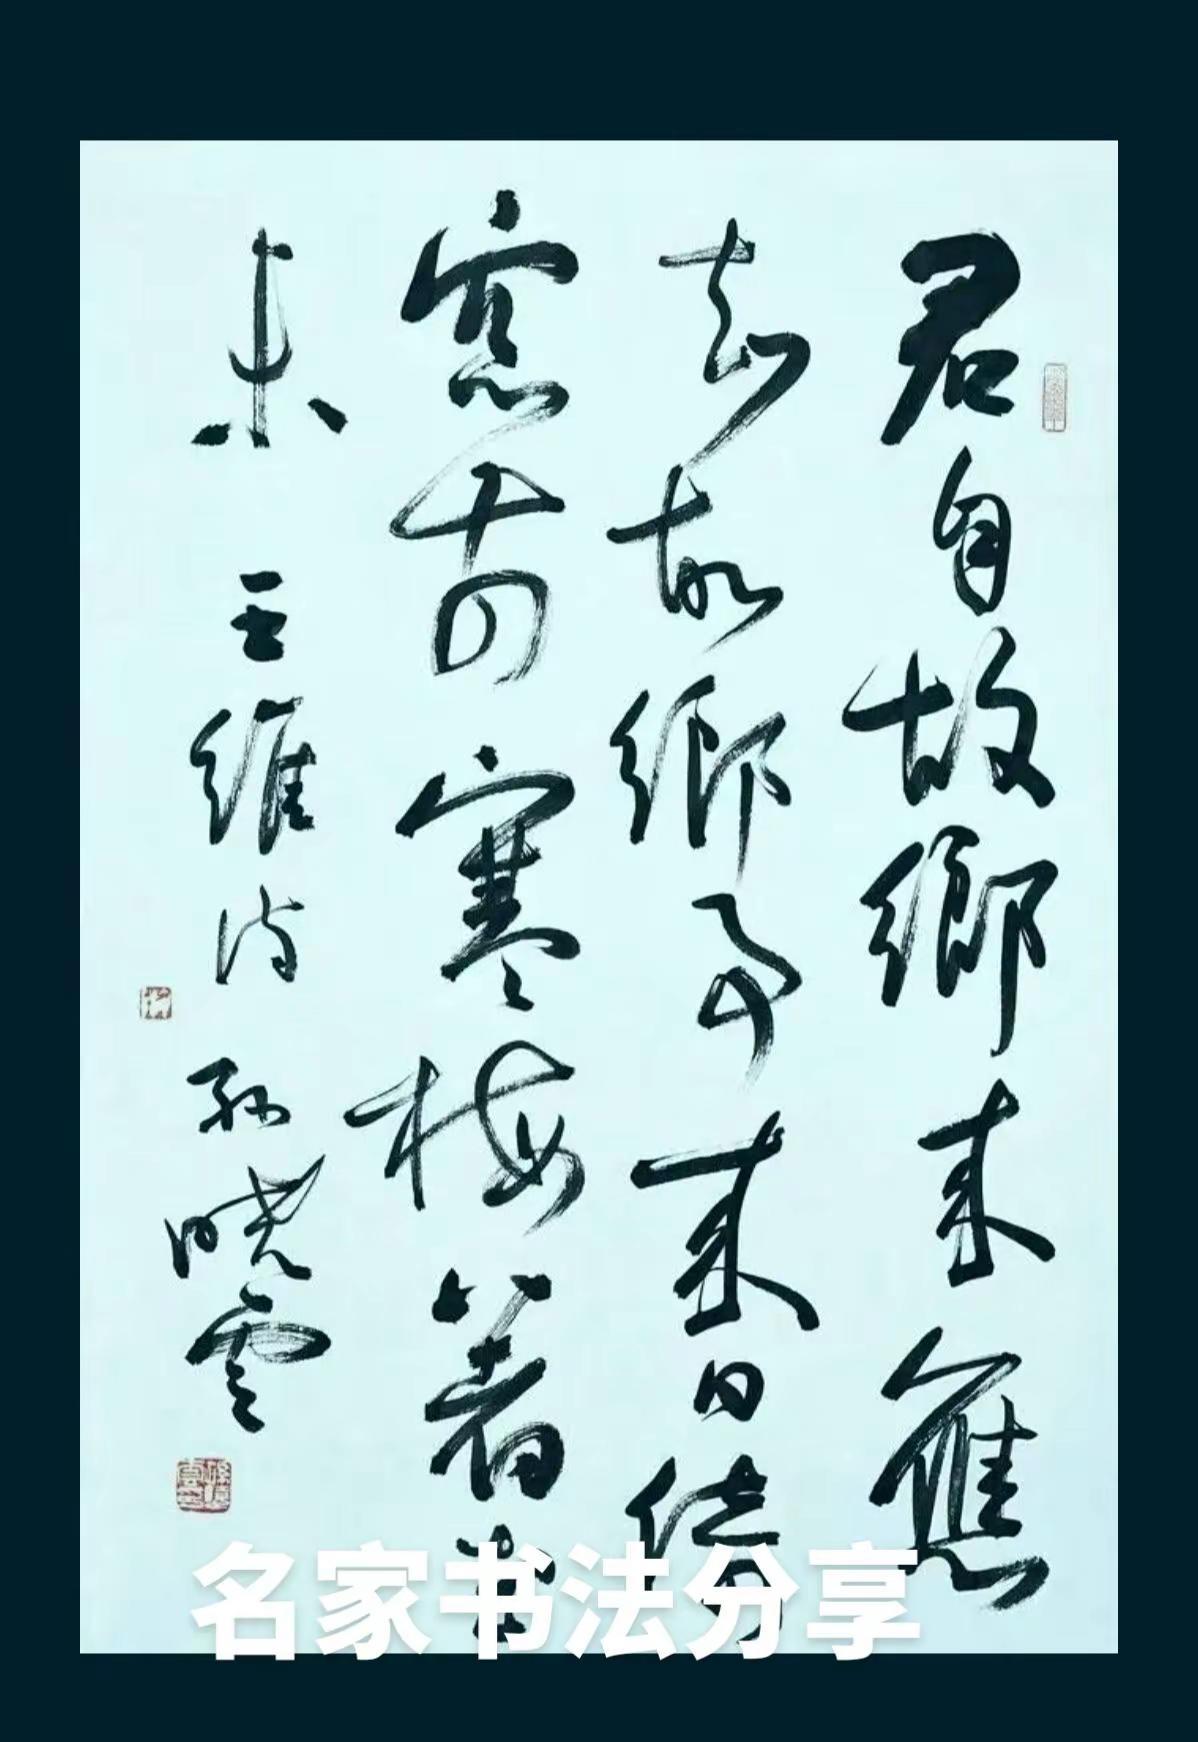 君自故鄉来應
知故鄉事来日綺
窓前寒梅著花
未 王維詩 孫曉雲
名家书法分享